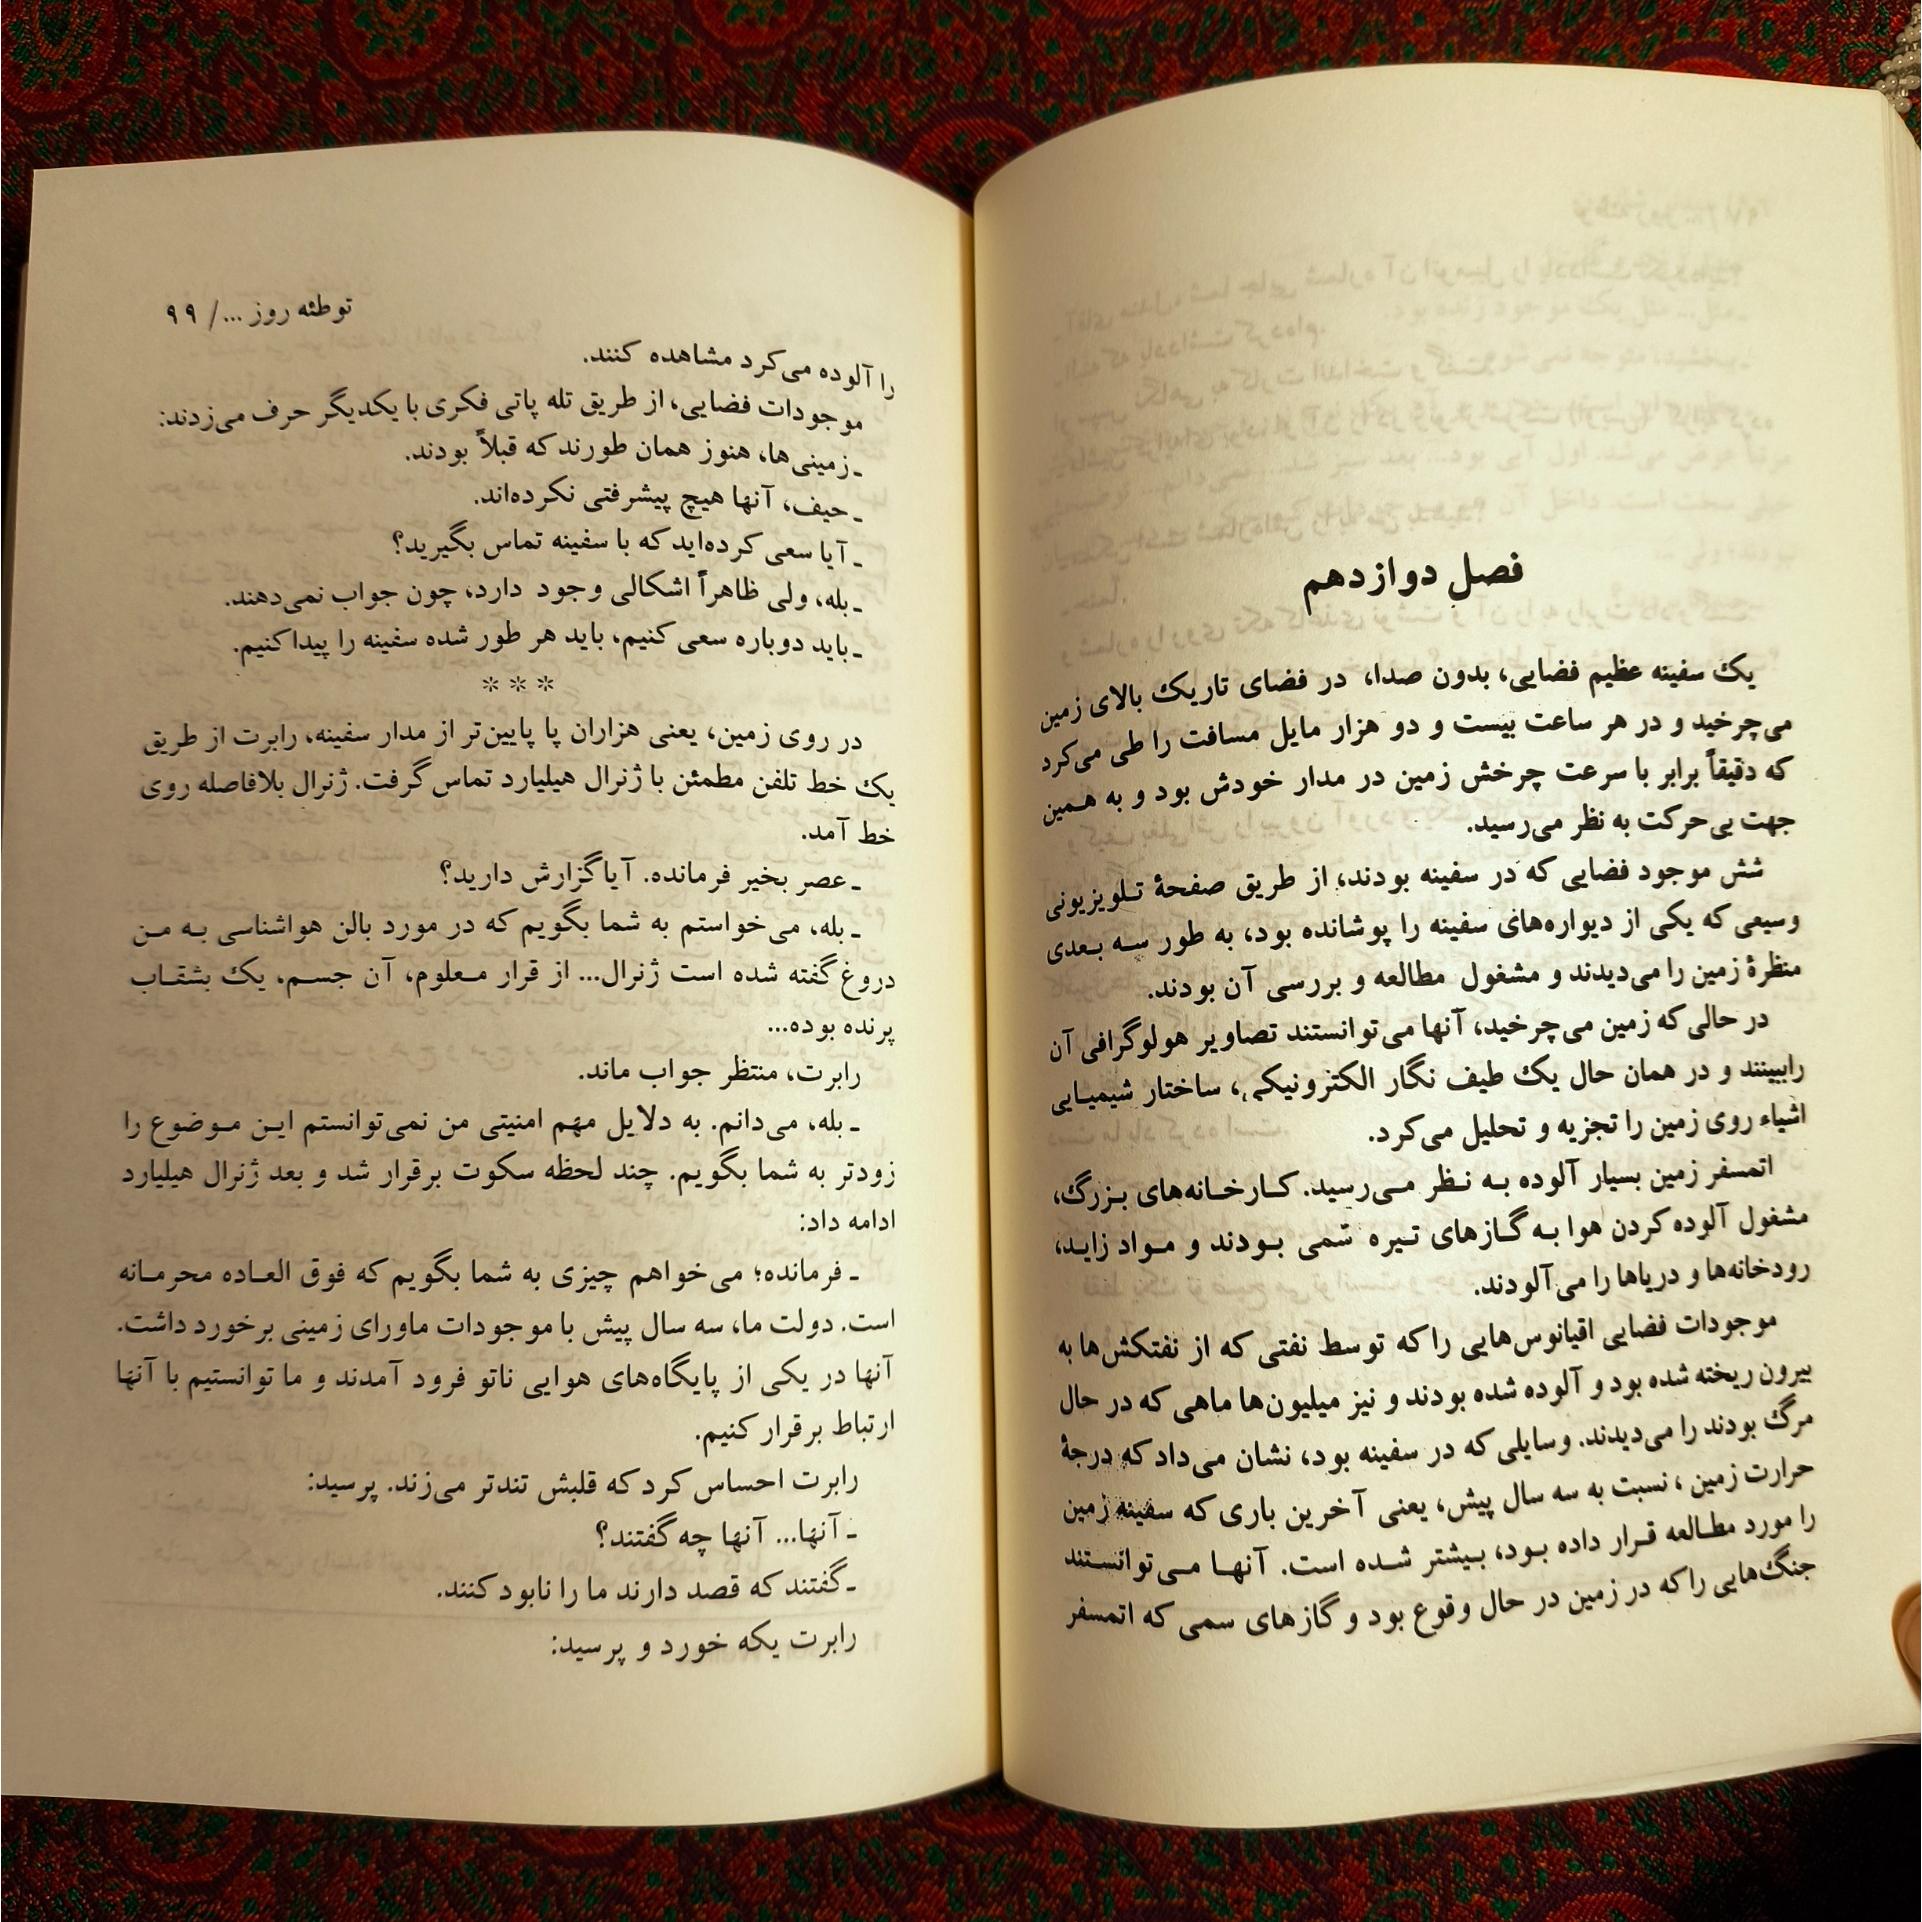 فصلِ دوازدهم
یک سفینه عظیم فضایی، بدون صدا، در فضای تاریک بالای زمین
می‌چرخید و در هر ساعت بیست و دو هزار مایل مسافت را طی می‌کرد
که دقیقاً برابر با سرعت چرخش زمین در مدار خودش بود و به همین
جهت بی‌حرکت به نظر می‌رسید.
شش موجود فضایی که در سفینه بودند، از طریق صفحهٔ تلویزیونی
وسیعی که یکی از دیواره‌های سفینه را پوشانده بود، به طور سه بعدی
منظرهٔ زمین را می‌دیدند و مشغول مطالعه و بررسی آن بودند.
در حالی که زمین می‌چرخید، آنها می‌توانستند تصاویر هولوگرافی آن
راببینند و در همان حال یک طیف نگار الکترونیکی، ساختار شیمیایی
اشیاء روی زمین را تجزیه و تحلیل می‌کرد.
اتمسفر زمین بسیار آلوده به نظر می‌رسید. کارخانه‌های بزرگ،
مشغول آلوده کردن هوا به گازهای تیره سّمی بودند و مواد زاید،
رودخانه‌ها و دریاها را می‌آلودند.
موجودات فضایی اقیانوس‌هایی را که توسط نفتی که از نفتکش‌ها به
بیرون ریخته شده بود و آلوده شده بودند و نیز میلیون‌ها ماهی که در حال
مرگ بودند را می‌دیدند. وسایلی که در سفینه بود، نشان می‌داد که درجهٔ
حرارت زمین ، نسبت به سه سال پیش، یعنی آخرین باری که سفینه زمین
را مورد مطالعه قرار داده بود، بیشتر شده است. آنها می‌توانستند
جنگ‌هایی را که در زمین در حال وقوع بود و گازهای سمی که اتمسفر
توطئه روز .../ ۹۹
را آلوده می‌کرد مشاهده کنند.
موجودات فضایی، از طریق تله پاتی فکری با یکدیگر حرف می‌زدند:
ـ زمینی‌ها، هنوز همان طورند که قبلاً بودند.
ـ حیف، آنها هیچ پیشرفتی نکرده‌اند.
ـ آیا سعی کرده‌اید که با سفینه تماس بگیرید؟
ـ بله، ولی ظاهراً اشکالی وجود دارد، چون جواب نمی‌دهند.
ـ باید دوباره سعی کنیم، باید هر طور شده سفینه را پیدا کنیم.
* * *
در روی زمین، یعنی هزاران پا پایین‌تر از مدار سفینه، رابرت از طریق
یک خط تلفن مطمئن با ژنرال هیلیارد تماس گرفت. ژنرال بلافاصله روی
خط آمد.
ـ عصر بخیر فرمانده. آیا گزارش دارید؟
ـ بله، می‌خواستم به شما بگویم که در مورد بالن هواشناسی به من
دروغ گفته شده است ژنرال... از قرار معلوم، آن جسم، یک بشقاب
پرنده بوده...
رابرت، منتظر جواب ماند.
ـ بله، می‌دانم. به دلایل مهم امنیتی من نمی‌توانستم این موضوع را
زودتر به شما بگویم. چند لحظه سکوت برقرار شد و بعد ژنرال هیلیارد
ادامه داد:
ـ فرمانده؛ می‌خواهم چیزی به شما بگویم که فوق العاده محرمانه
است. دولت ما، سه سال پیش با موجودات ماورای زمینی برخورد داشت.
آنها در یکی از پایگاه‌های هوایی ناتو فرود آمدند و ما توانستیم با آنها
ارتباط برقرار کنیم.
رابرت احساس کرد که قلبش تندتر می‌زند. پرسید:
ـ آنها... آنها چه گفتند؟
ـ گفتند که قصد دارند ما را نابود کنند.
رابرت یکه خورد و پرسید: